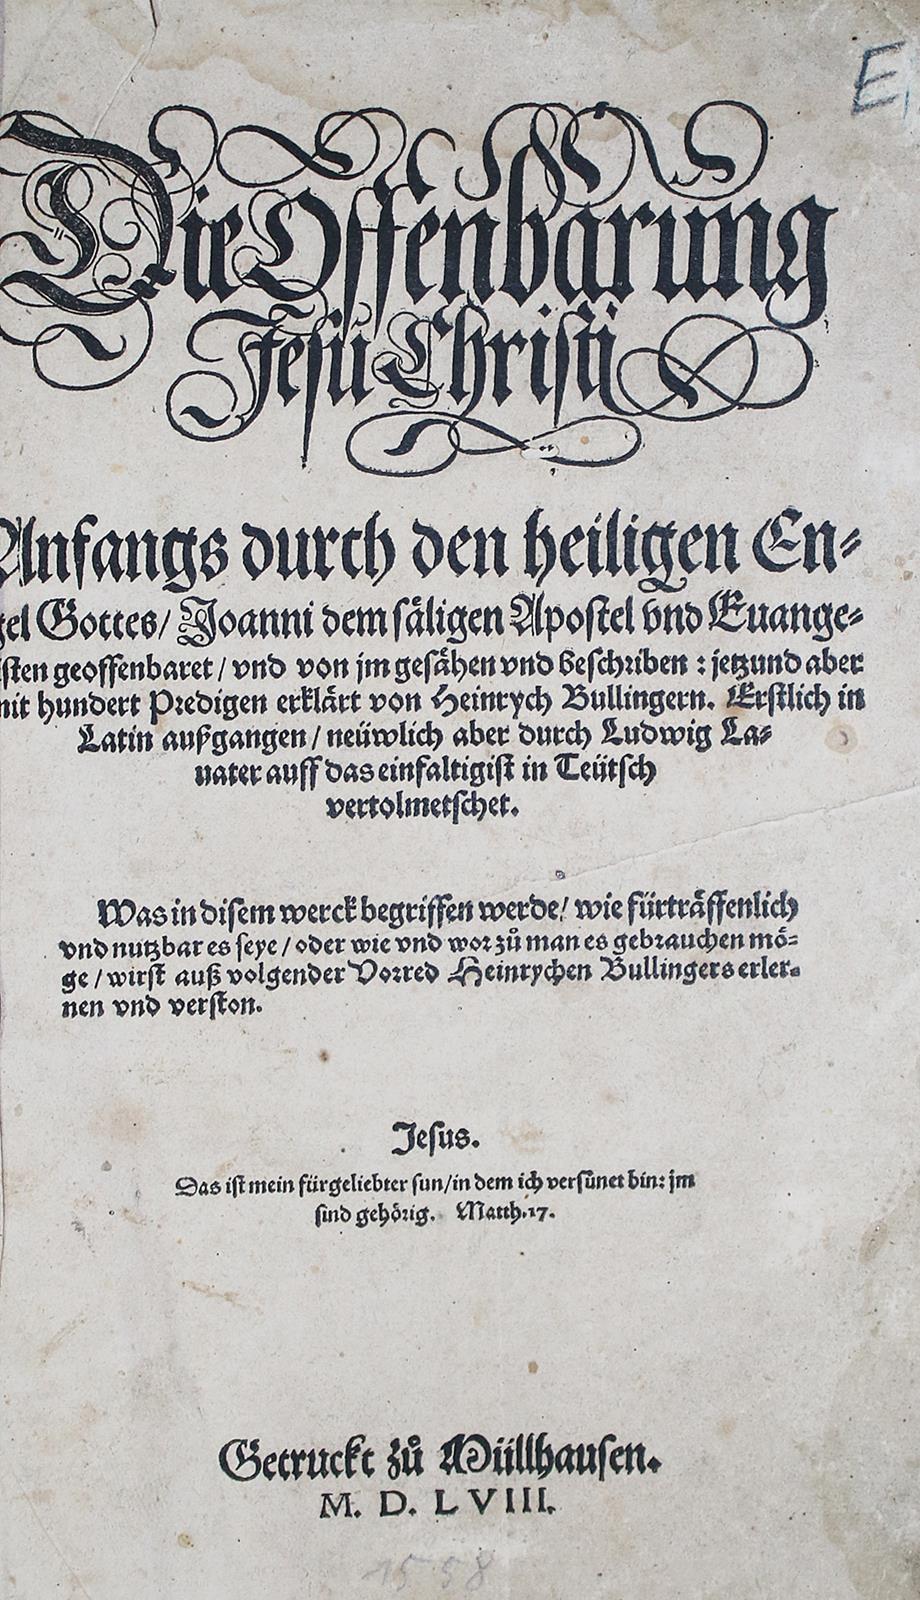 E
Die Offenbarung
Jesu Christi
Anfangs durch den heiligen En-
gel Gottes/ Joanni dem säligen Apostel vnd Euange-
listen geoffenbaret/ vnd von jm gesähen vnd beschriben: jetzund aber
mit hundert Predigen erklärt von Heinrych Bullingern. Erstlich in
Latin außgangen/ neüwlich aber durch Ludwig La-
uater auff das einfaltigist in Teütsch
vertolmetschet.
Was in disem werck begriffen werde/ wie fürträffenlich
vnd nutzbar es seye/ oder wie vnd worzů man es gebrauchen mö-
ge/ wirst auß volgender Vorred Heinrychen Bullingers erler-
nen vnd verston.
Jesus.
Das ist mein für geliebter sun/ in dem ich versünet bin: jm
sind gehörig. Matth. 17.
Getruckt zů Müllhausen.
M. D. LVIII.
1558